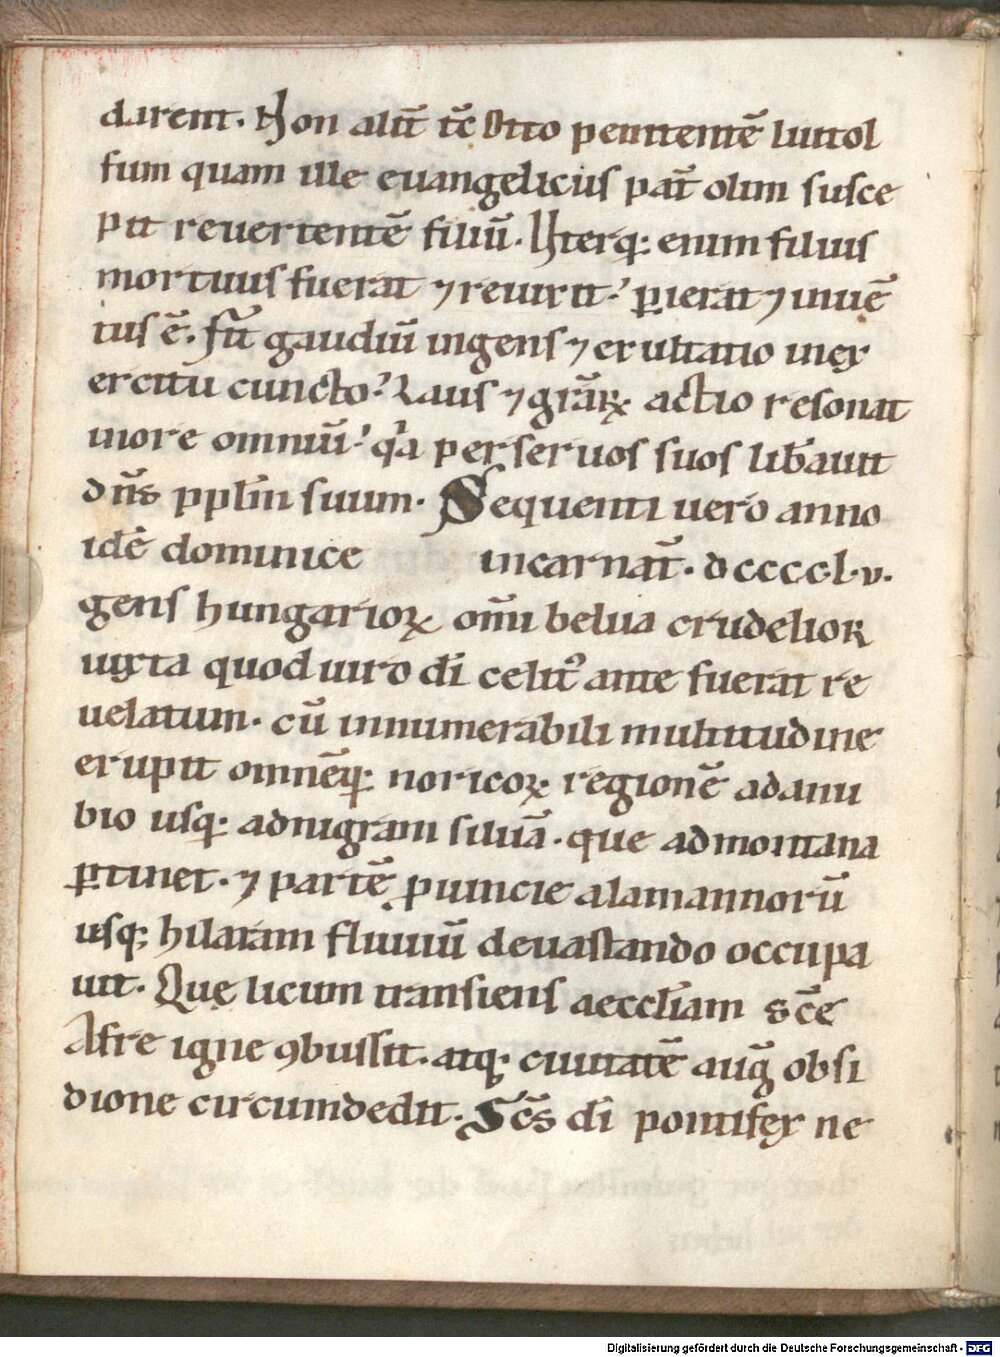 darent. Non alit̄ tc̄ Otto penitentē luitol
fum quam ille euangelicus pat̄ olim susce
pit reuertentē filiū. Uterq; enim filius
mortuus fuerat ⁊ reuixit.' ꝑierat ⁊ inuē
tus ē. fit̄ gaudiū ingens ⁊ exultatio in ex
ercitu cuncto.' Laus ⁊ gr̄aꝝ actio resonat
in ore omniū.' q'a per seruos suos lib̄auit
dn̄s ppl̄m suum. Sequenti uero anno
idē dominice incarnat̄. dcccc.l.v.
gens hungarioꝝ om̄i belua crudelior
iuxta quod uiro di̅ celit' ante fuerat re
uelatum. cū innumerabili multitudine
erupit omnēq; noricoꝝ regionē a danu
bio usq; ad nigram siluā. que ad montana
ꝑtinet. ⁊ partē ꝓuincie alamannorū
usq; hilaram fluuiū deuastando occupa
uit. Quę licum transiens aeccl̄iam sc̄e
Afre igne ꝯbussit. atq; ciuitatē auḡ obsi
dione circumdedit. Sc̄s di̅ pontifex ne
Digitalisierung gefördert durch die Deutsche Forschungsgemeinschaft - DFG